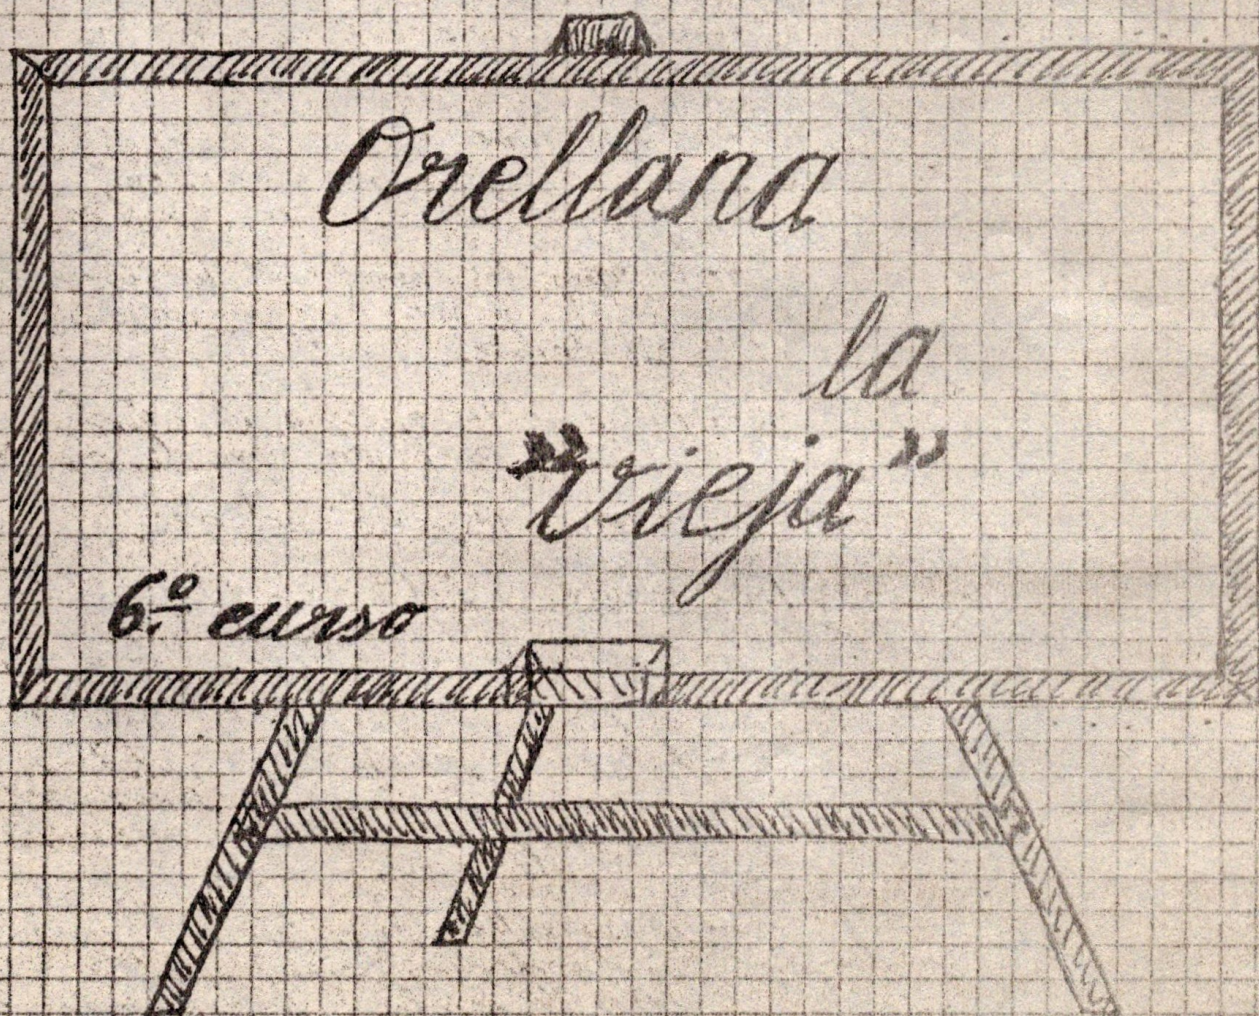 Orellana
la
"vieja"
6.º curso